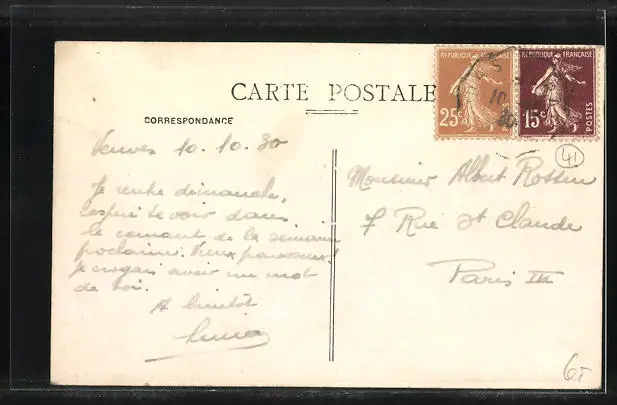 CARTE POSTALE
CORRESPONDANCE
REPUBLIQUE FRANÇAISE
25c
REPUBLIQUE FRANÇAISE
15c
POSTES
41
10.10.30
Je rentre dimanche,
j'espère te voir dans
le courant de la semaine
prochaine. Vieux paresseux!
Je croyais avoir un mot
de toi.
A bientôt
Monsieur Albert
7 Rue St Claude
Paris